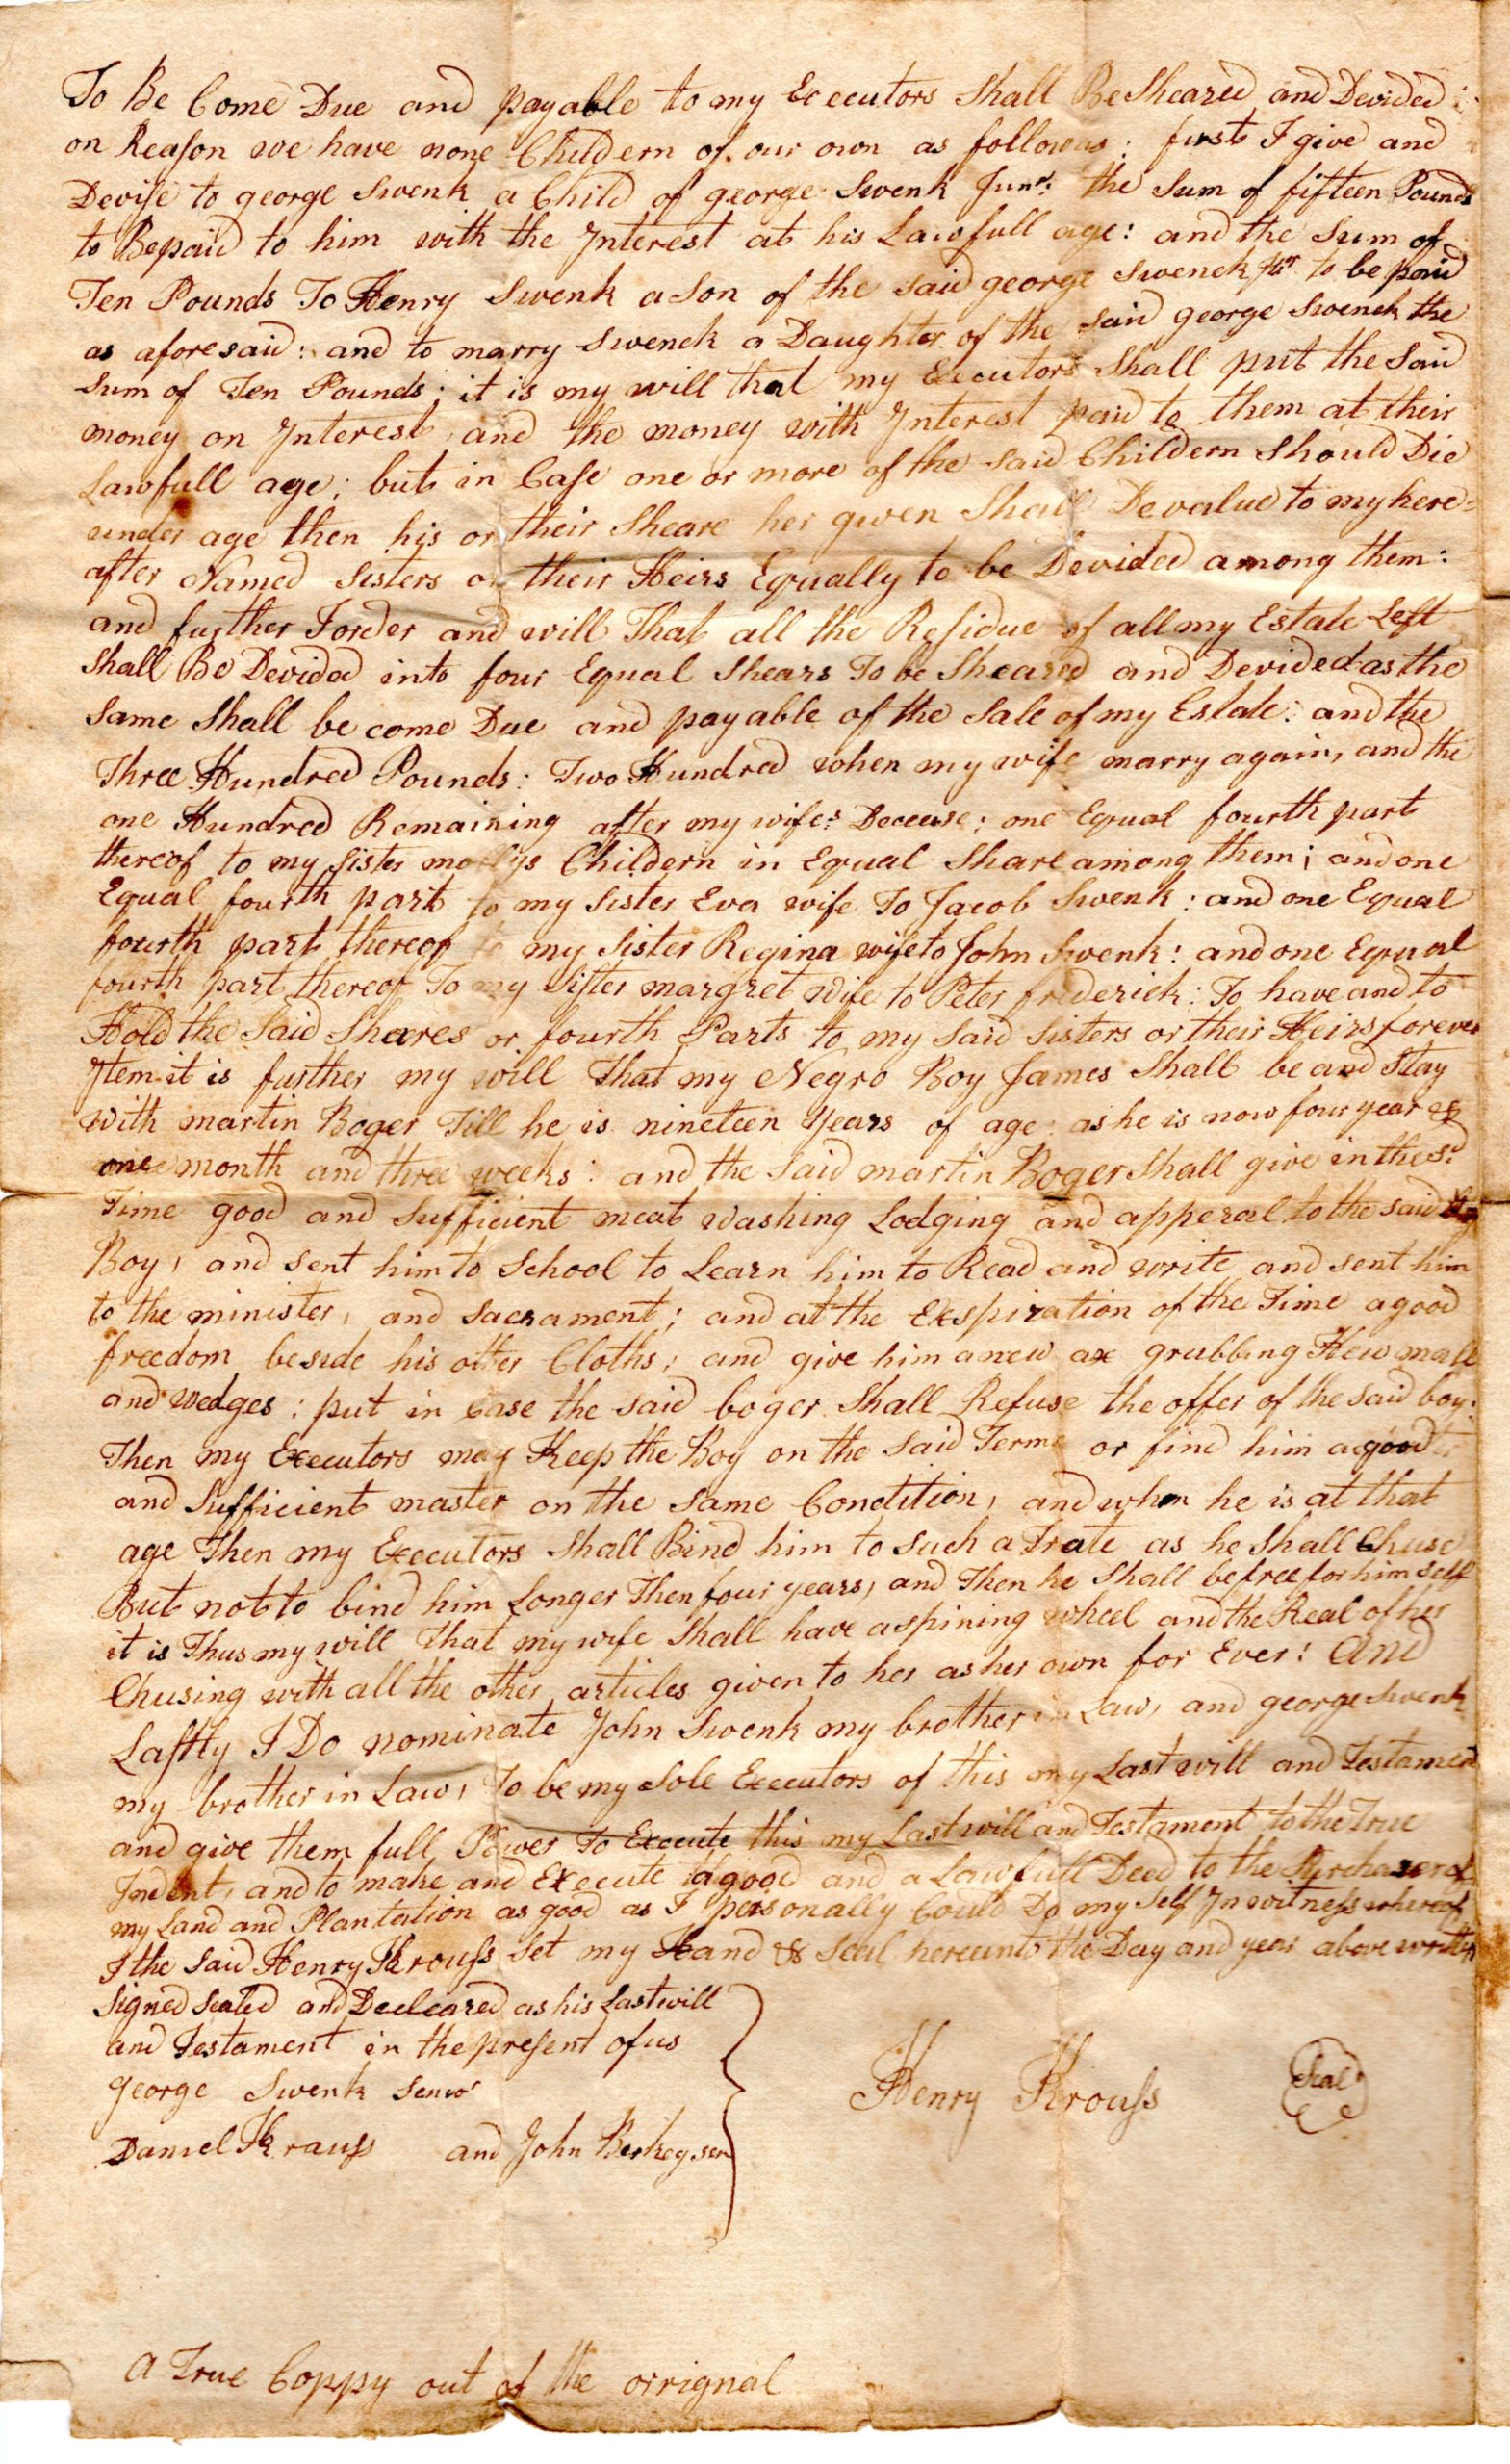 To Be Come Due and payable to my Executors Shall Be Sheared and Devided
on Reason we have none Childern of our own as followes: first I give and
Devise to george Swenk a Child of george Swenk Junr: the Sum of fifteen Pounds
to Be paid to him with the Interest at his Lawfull age: and the Sum of
Ten Pounds To Henry Swenk a Son of the Said george Swenck Jur to be paid
as afore said: and to marry Swenck a Daughter of the Said george Swenck the
Sum of Ten Pounds; it is my will that my Executors Shall put the Said
money on Interest, and the money with Interest paid to them at their
Lawfull age; but in Case one or more of the Said Childern Should Die
under age then his or their Sheare her given Shall Devalue to my here=
after Named Sisters or their Heirs Equally to be Devided among them:
and further I order and will That all the Residue of all my Estate Left
Shall Be Devided into four Equal Shears To be Sheared and Devided as the
Same Shall be come Due and payable of the Sale of my Estate: and the
Three Hundred Pounds: Two Hundred when my wife marry again, and the
one Hundred Remaining after my wife: Decease; one Equal fourth part
thereof to my Sister mollys Childern in Equal Share among them; and one
Equal fourth part to my Sister Eva wife To Jacob Swenk: and one Equal
fourth part thereof to my Sister Regina wife to John Swenk: and one Equal
fourth part thereof To my Sister margret wife to Peter frederick: To have and to
Hold the Said Sheares or fourth Parts to my Said Sisters or their Heirs forever
Item it is further my will That my Negro Boy James Shall be and Stay
with martin Boger Till he is nineteen years of age as he is now four year &
one month and three weeks: and the Said martin Boger Shall give in the sd
Time good and Sufficient meat washing Lodging and apperal to the said
Boy, and sent him to School to Learn him to Read and write and sent him
to the minister, and Sacrament; and at the Exspiration of the Time a good
freedom beside his other Cloths; and give him a new ax grubbing Hew mall
and wedges: put in Case the said boger Shall Refuse the offer of the said boy:
Then my Executors may Keep the Boy on the Said Terme or find him a good
and Sufficient master on the Same Condition, and when he is at that
age Then my Executors Shall Bind him to Such a Trate as he Shall Chuse
But not to bind him Longer Then four years, and Then he Shall be free for him Self
it is Thus my will That my wife Shall have a spining wheel and the Real of her
Chusing with all the other articles given to her as her own for Ever: And
Lastly I Do nominate John Swenk my brother in Law, and george Swenk
my brother in Law, To be my Sole Executors of this my Last will and Testament
and give them full Power To Execute this my Last will and Testament to the True
Indent, and to make and Execute a good and a Lawfull Deed to the Purchaser of
my Land and Plantation as good as I personally Could Do my Self In witness whereof
I the Said Henry Krouss Set my Hand & Seal hereunto the Day and year above written
Signed Sealed and Decleared as his Last will
and Testament in the present of us
George Swenk Senior
Daniel Krauss and John Berkeyser
Henry Krouss Seal
A True Coppy out of the orrignal